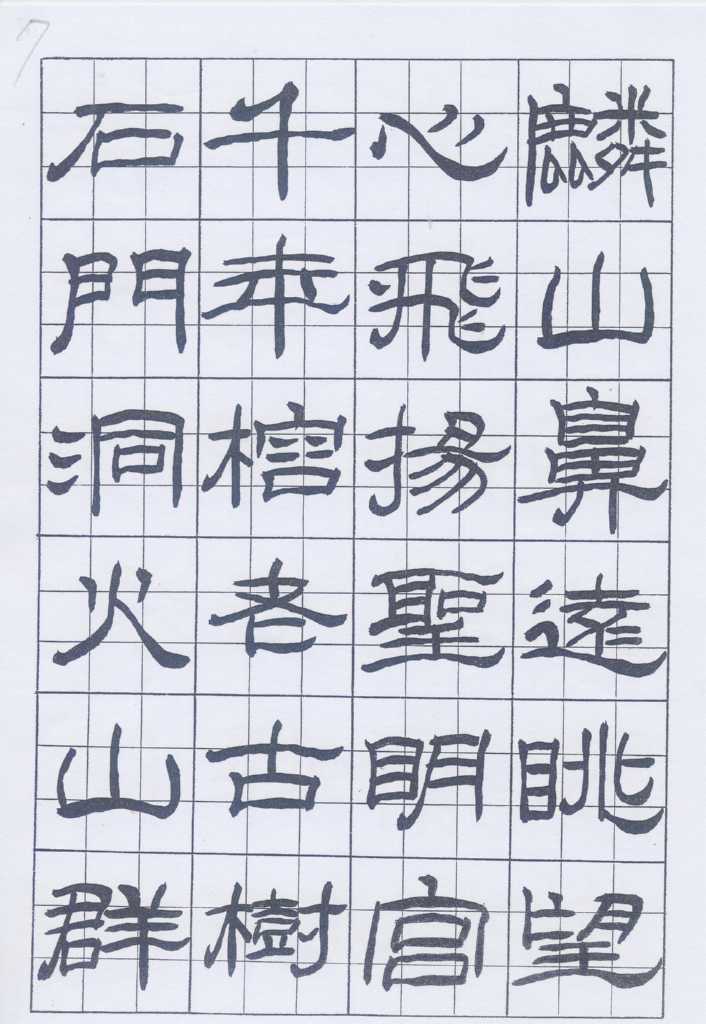 7
麟山鼻遠眺望
心飛揚聖明宫
千年榕老古樹
石門洞火山群